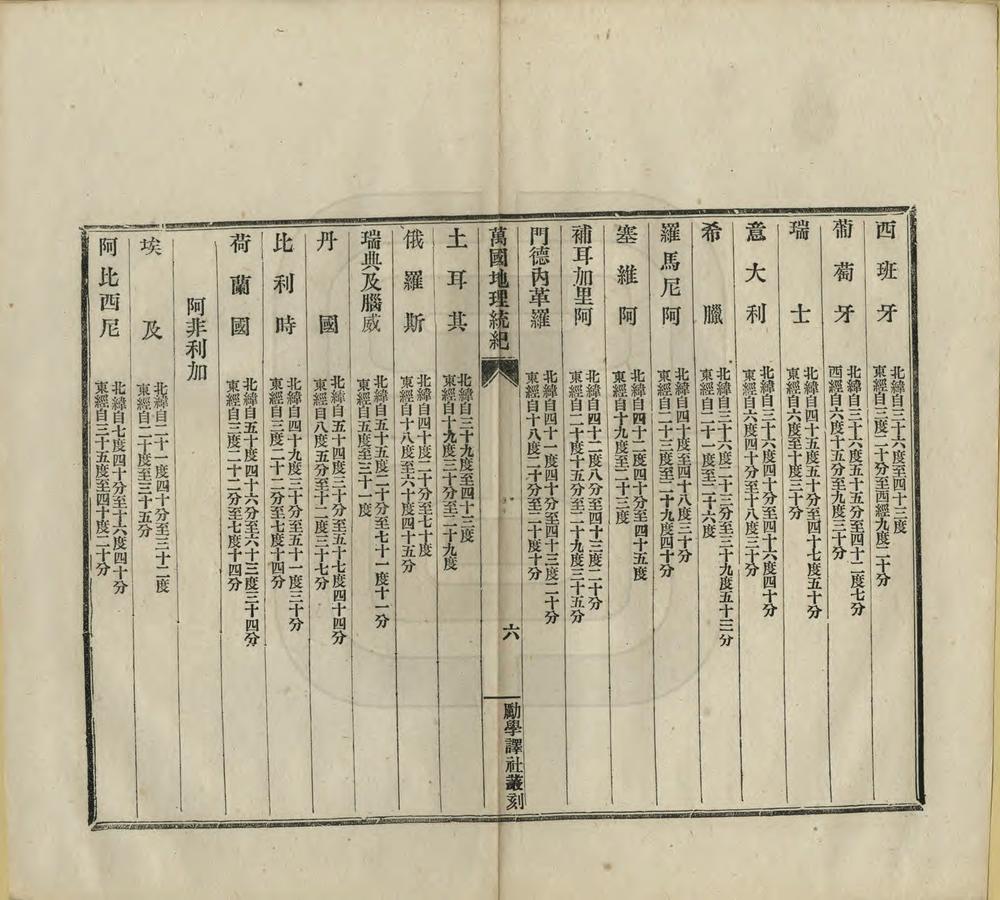 西班牙
北緯自三十六度至四十三度
東經自三度二十分至西經九度二十分
葡萄牙
北緯自三十六度五十五分至四十二度七分
西經自六度十五分至九度三十分
瑞士
北緯自四十五度五十分至四十七度五十分
東經自六度至十度三十分
意大利
北緯自三十六度四十分至四十六度四十分
東經自六度四十分至十八度三十分
希臘
北緯自三十六度二十三分至三十九度五十三分
東經自二十一度至二十六度
羅馬尼阿
北緯自四十度至四十八度三十分
東經自二十三度至二十九度四十分
塞維阿
北緯自四十二度四十分至四十五度
東經自十九度至二十三度
補耳加里阿
北緯自四十二度八分至四十三度二十分
東經自二十度十五分至二十九度三十五分
門德內革羅
北緯自四十一度四十分至四十三度二十分
東經自十八度二十分至二十度十分
萬國地理統紀
六
勵學譯社叢刻
土耳其
北緯自三十九度至四十三度
東經自十九度三十分至二十九度
俄羅斯
北緯自四十度二十分至七十度
東經自十八度至六十度四十五分
瑞典及腦威
北緯自五十五度二十分至七十一度十一分
東經自五度至三十一度
丹國
北緯自五十四度三十分至五十七度四十四分
東經自八度五分至十二度三十七分
比利時
北緯自四十九度三十分至五十一度三十分
東經自三度二十二分至七度十四分
荷蘭國
北緯自五十度四十六分至六十三度三十四分
東經自三度二十二分至七度十四分
阿非利加
埃及
北緯自二十一度四十分至三十二度
東經自二十度至三十五分
阿比西尼
北緯自七度四十分至十六度四十分
東經自三十五度至四十度二十分